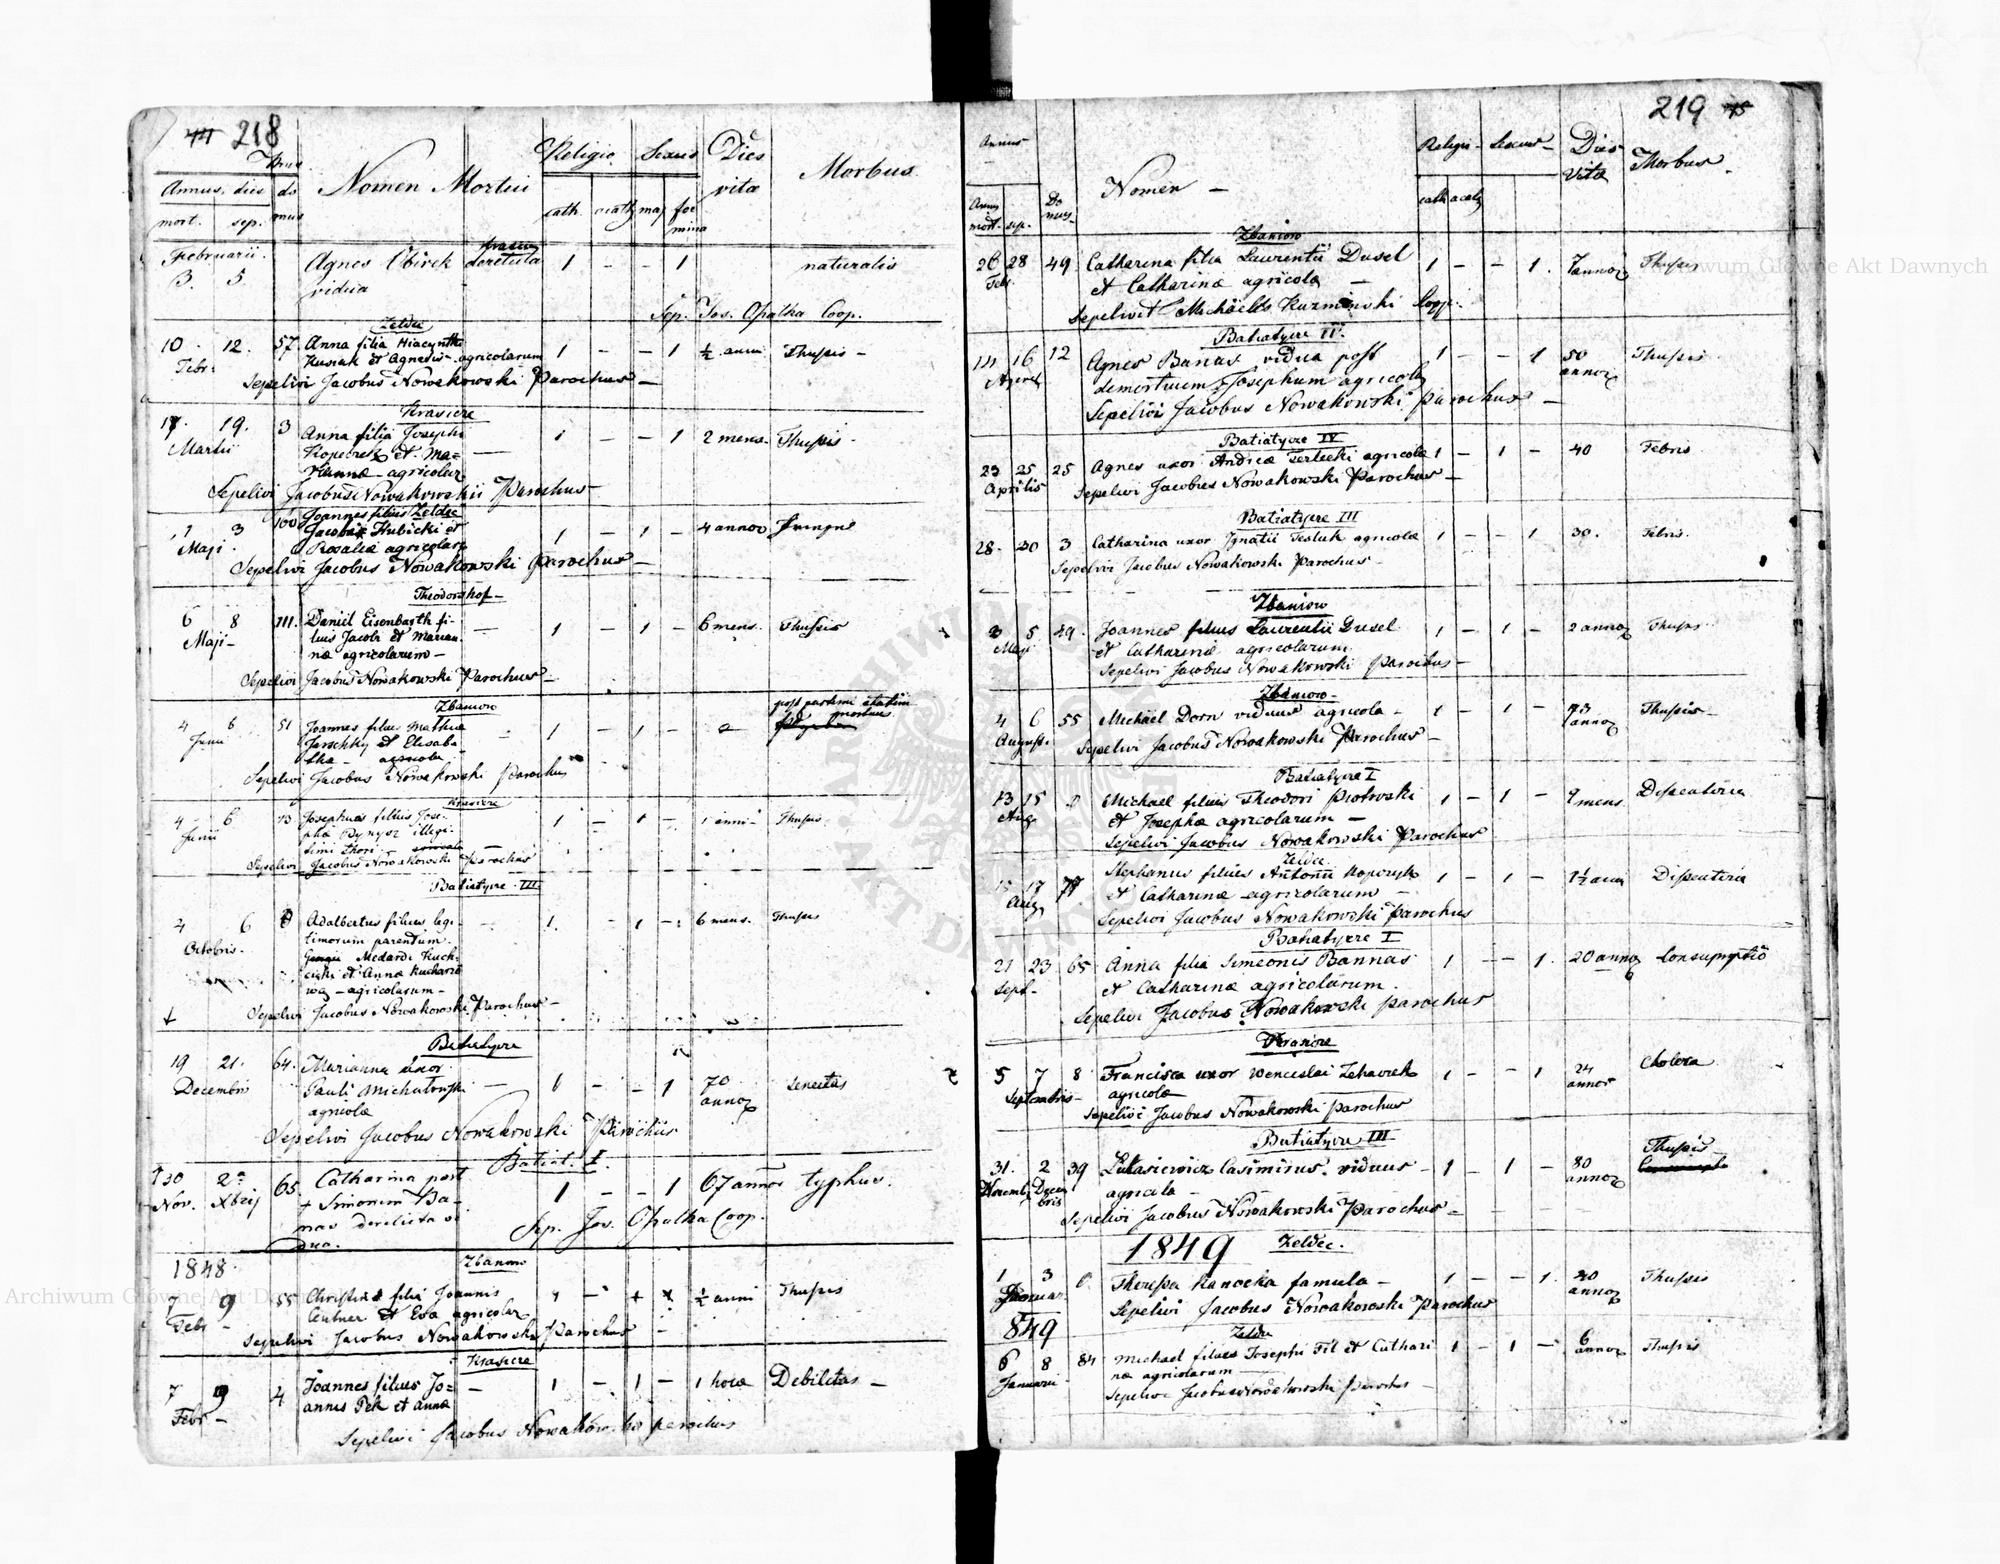 44 218
Annus, dies
mort. sep.
Domus
Nomen Mortui
Religio
cath. acath.
Sexus
mas foemina
Dies vitae
Morbus
Februarii
3. 5.
Agnes derelicta 1 - - 1 naturalis
vidua
Sep. Jos. Opalka Coop.
Zeldec
10 12. 57. Anna filia Hiacynthi
Febr: Kusiak et Agnetis agricolarum 1 - - 1 ½ anni Thussis -
Sepelivi Jacobus Nowakowski Parochus -
Krasicze
17. 19. 3 Anna filia Josephi 1 - - 1 2 mens. Thussis -
Martii et Ma=
rianna - agricolar
Sepelivi Jacobus Nowakowski Parochus
1 3 100 Joannes filius Zeldec
Maji. Jacobi Hubicki et 1 - 1 - 4 annor
Rosaliae agricolar
Sepelivi Jacobus Nowakowski Parochus -
Theodorshof -
6 8 111. Daniel Eisenbarth fi-
Maji - lius Jacobi et Marian 1 - 1 - 6 mens. Thussis
nae agricolarum -
Sepelivi Jacobus Nowakowski Parochus -
Zbaniow
post partum statim
mortuus
4 6 51 Joannes filius Mathiae
Junii Jaeschky et Elisabe 1 - 1 -
thae - agricolar
Sepelivi Jacobus Nowakowski Parochus
Krasicze
4 - 6 13 Josephus filius Jose- 1 - 1 - 1 anni - Thussis
Junii phae illegi-
timi thori -
Sepelivi Jacobus Nowakowski Parochus
Batiatycze III
2 6 Adalbertus filius legi- 1. - 1 - 6 mens. Thussis
Octobris. timorum parentum
Medardi Kuch-
cicki et Annae
- agricolarum -
Sepelivi Jacobus Nowakowski Parochus -
Batiatycze
19 21. 64. Marianna uxor
Decembris Pauli Michałowski - 1 - - 1 70 annor Senectus
agricolae
Sepelivi Jacobus Nowakowski Parochus
Batiat. I.
30 2 65. Catharina post 1 - - 1 67 annor typhus.
Nov. Xbris + Simonem Ba-
nas derelicta vi
dua.
Sep. Jos. Opalka Coop.
1848.
Zbaniow
7 9 55 Christina filia Joannis ½ anni Thussis
Febr - et Eva agricolar
Sepelivi Jacobus Nowakowski Parochus -
Krasicze
7 9 4 Joannes filius Jo= - 1 - 1 - 1 hora Debilitas -
Febr - annis Pek et Annae
Sepelivi Jacobus Nowakowski parochus
219 45
Annus
mort. sep.
Domus
Nomen -
Religio - Sexus -
cath acath
Dies Vitae
Morbus -
Zbaniow
26 28 49. Catharina filia Laurentii Dusel 1 - - 1. 7 annor Thussis
Febr. et Catharinae agricola -
Sepelivit Michaelis Kuzminski Coop.
Batiatycze II.
14 16 12 Agnes Banas vidua post 1 - - 1 50 annor Thussis
demortuum Josephum agricolae
Sepelivi Jacobus Nowakowski parochus -
Batiatycze IV
23 25 25 Agnes uxor Andreae Terlecki agricolae 1 - 1 - 40 Febris
Aprilis Sepelivi Jacobus Nowakowski Parochus -
Batiatycze III
28. 30 3 Catharina uxor Ignatii Tesluk agricolae 1 - - 1 30. Febris.
Sepelivi Jacobus Nowakowski Parochus -
Zbaniow
3 5 49. Joannes filius Laurentii Dusel 1 - 1 - 2 annor Thussis
Maji et Catharinae agricolarum
Sepelivi Jacobus Nowakowski Parochus -
Zbaniow -
4 6 55 Michael Dorn viduus agricola - 1 - 1 - 73 annor Thussis -
August. Sepelivi Jacobus Nowakowski Parochus -
Batiatycze I
13 15 Michael filius Theodori Piotrowski 1 - 1 - 9 mens. Dissenteria
Aug et Josepha agricolarum -
Sepelivi Jacobus Nowakowski Parochus
Zeldec
15 17 77. Stephanus filius Antonii Kopczyk 1 - 1 - 1½ anni Dissenteria
Aug et Catharinae agricolarum -
Sepelivi Jacobus Nowakowski Parochus
Batiatycze I
21 23 65 Anna filia Simeonis Bannas 1 - - 1. 20 annor Consumptio
Sept - et Catharinae agricolarum.
Sepelivi Jacobus Nowakowski parochus
Krasicze
5 7 8 Francisca uxor Venceslai 1 - - 1 24 annor Cholera
Septembris - agricolae
Sepelivi Jacobus Nowakowski parochus
Batiatycze III
31. 2 39 Łukasiewicz Casimirus. viduus - 1 - 1 - 80 annor Thussis
Novemb Decembris agricola -
Sepelivi Jacobus Nowakowski Parochus -
1849 Zeldec.
1 3 Theressa Kanocka famula - 1 - - 1. annor Thussis
Januar Sepelivi Jacobus Nowakowski Parochus
849
Zeldec
6 8 84 Michael filius Josephi Fil et Cathari 1 - 1 - 6 annor Thussis
Januarii nae agricolarum -
Sepelivi Jacobus Nowakowski Parochus -
Archiwum Główne Akt Dawnych
Archiwum Główne Akt Dawnych
ARCHIWUM GŁÓWNE AKT DAWNYCH